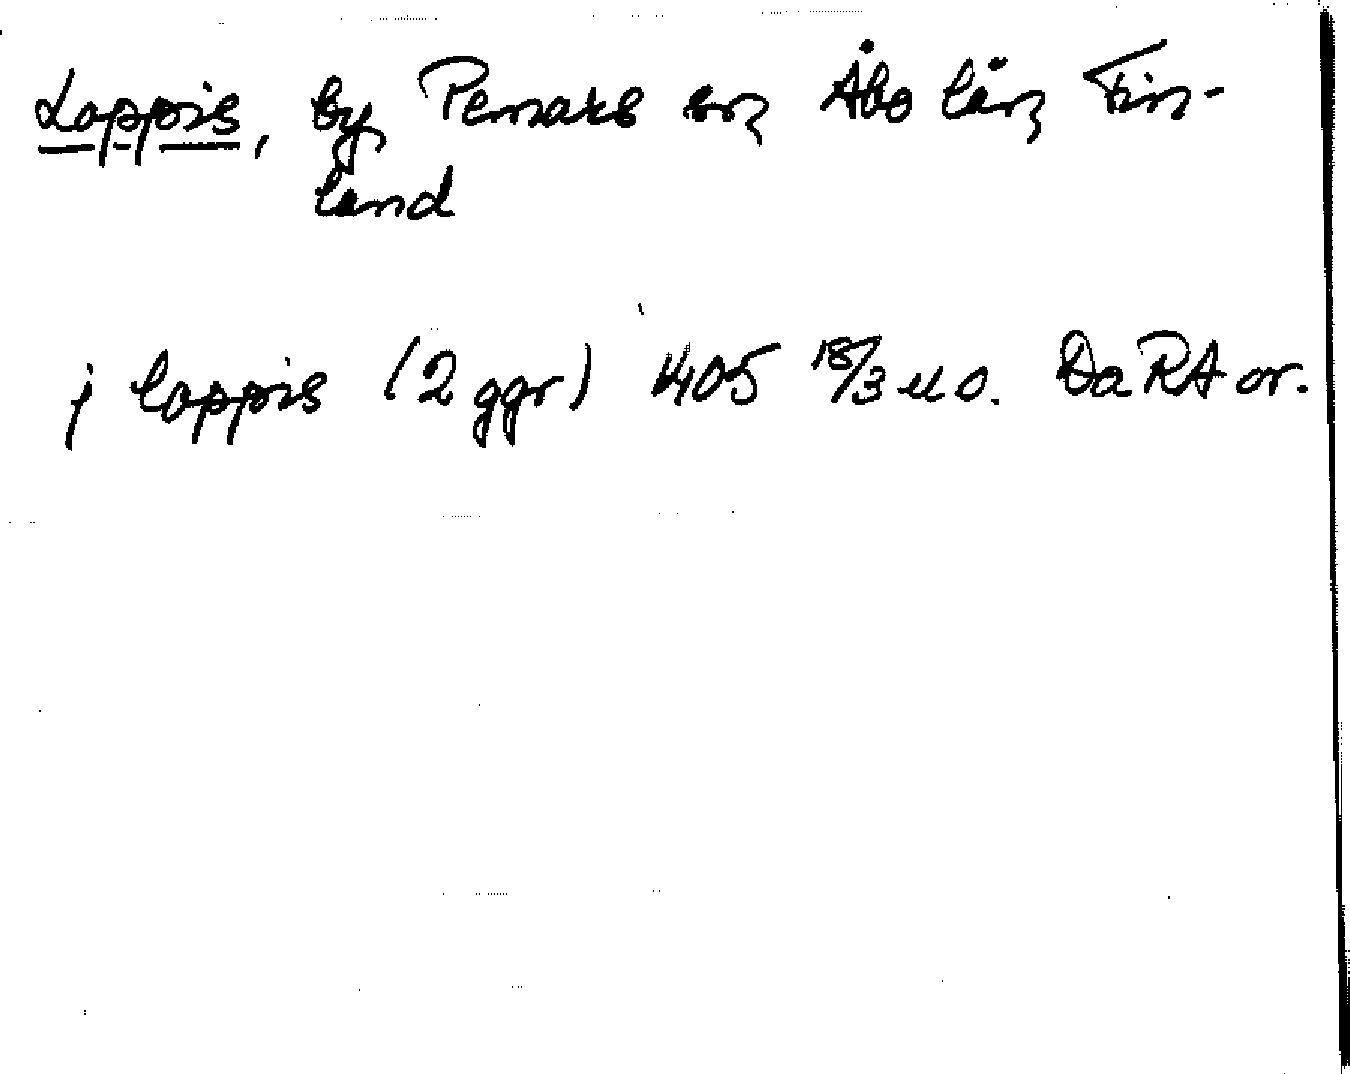 Lappis, by, Pemars sn, Åbo län, Fin-
land
j lappis (2 ggr) 1405 18/3 u o. DaRA or.